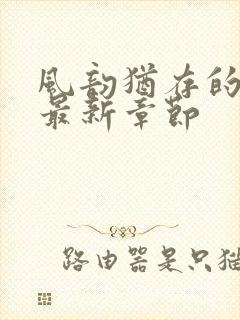 風韵猶存的
最新章節
路由器是只猫